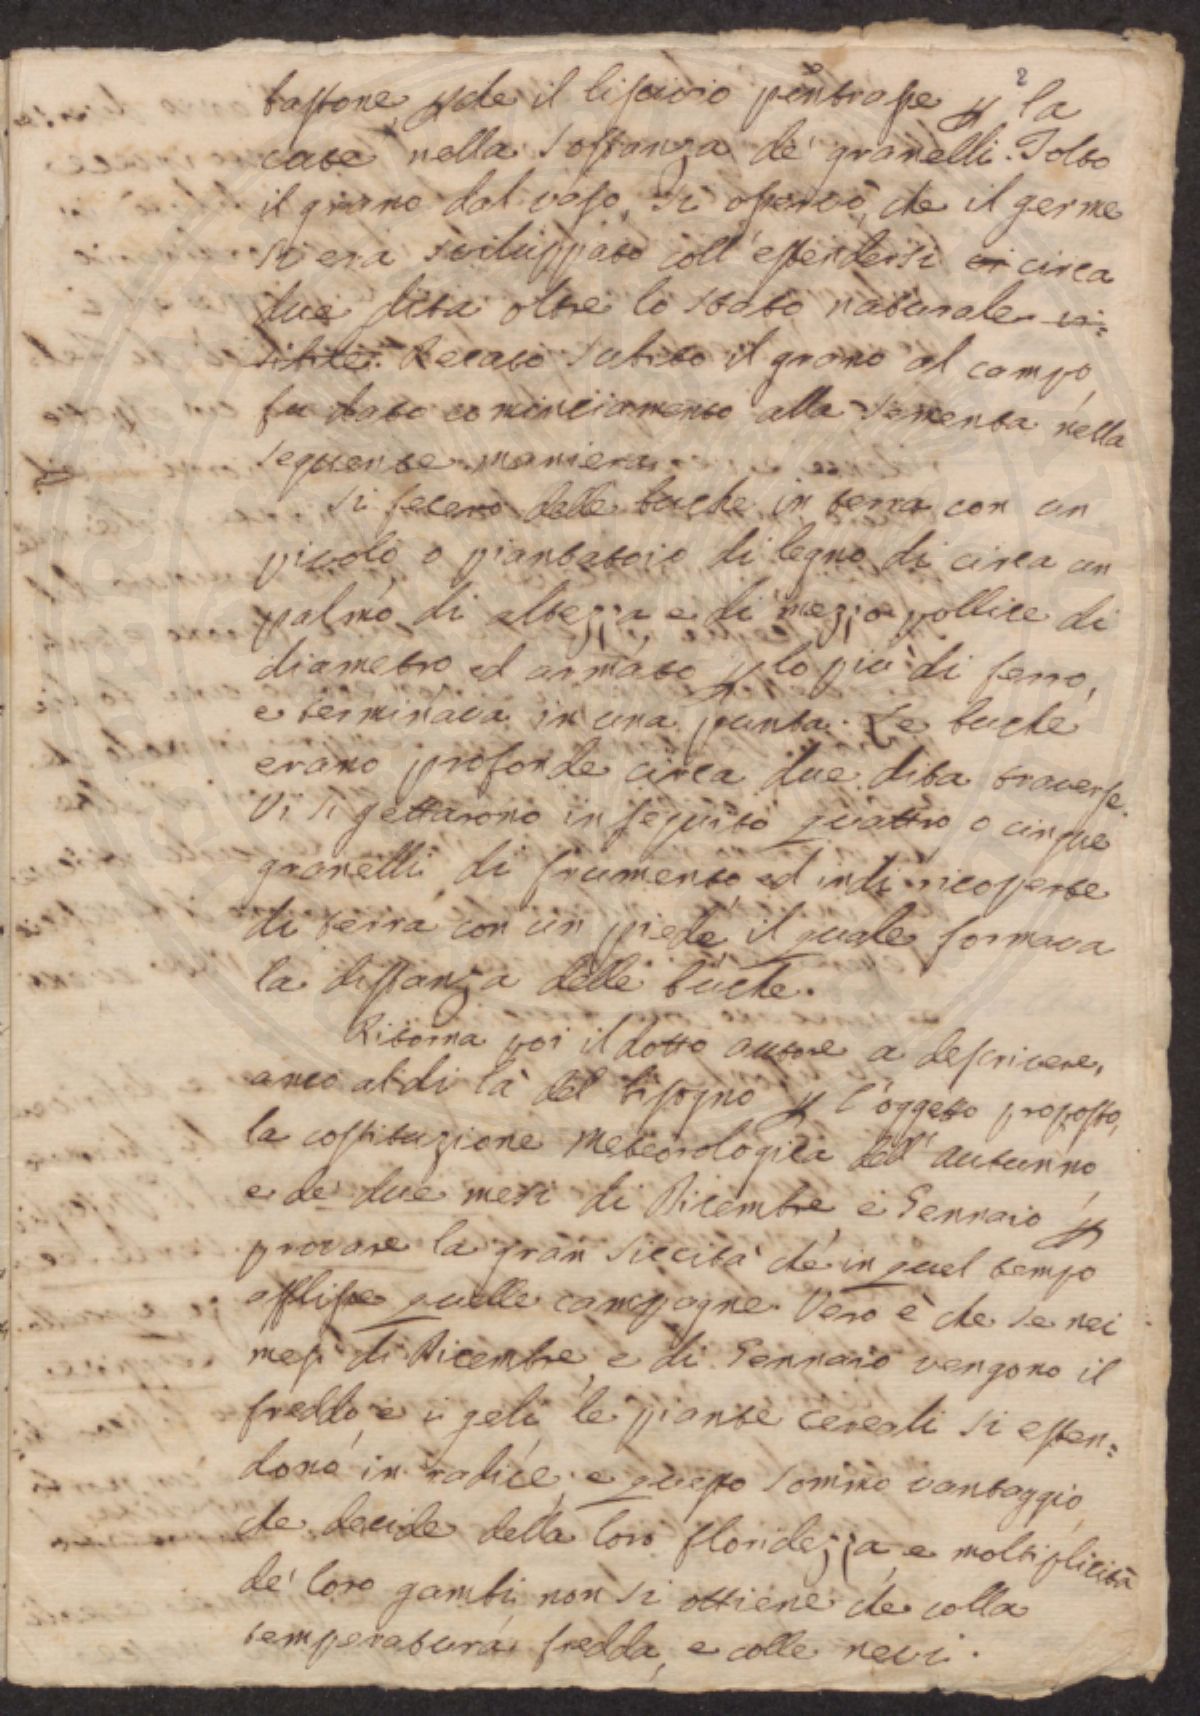 2
bastone, perche il liscivio penetrasse per la
cute nella sostanza de' granelli. Tolto
il grano dal vaso, si osservò, che il germe
si era sviluppato coll'estendersi circa
due dita oltre lo stato naturale.
Recato subito il grano al campo,
fu dato cominciamento alla sementa nella
seguente maniera.
Si fecero delle buche in terra con un
pivolo, o piantatoio di legno di circa un
palmo di altezza, e di mezzo pollice di
diametro ed armato per lo più di ferro,
e terminava in una punta. Le buche
erano profonde circa due dita traverse.
Vi si gettarono in seguito quattro o cinque
granelli di frumento, ed indi ricoperte
di terra con un piede, il quale formava
la distanza delle buche.
Ritorna poi il dotto autore a descrivere,
anco al di là del bisogno per l'oggetto proposto,
la costituzione meteorologica dell'autunno
e de' due mesi di Dicembre, e Gennaio per
provare la gran siccità che in quel tempo
afflisse quelle campagne. Vero è che se nei
mesi di Dicembre, e di Gennaio vengono il
freddo, e i geli, le piante cereali si esten=
dono in radice, e questo sommo vantaggio,
che decide della loro floridezza, e moltiplicità
de' loro gambi non si ottiene che colla
temperatura fredda, e colle nevi.